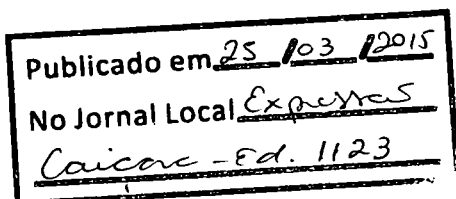 Publicado em 25 / 03 / 2015
No Jornal Local Expressão
Caiçara - Ed. 1123